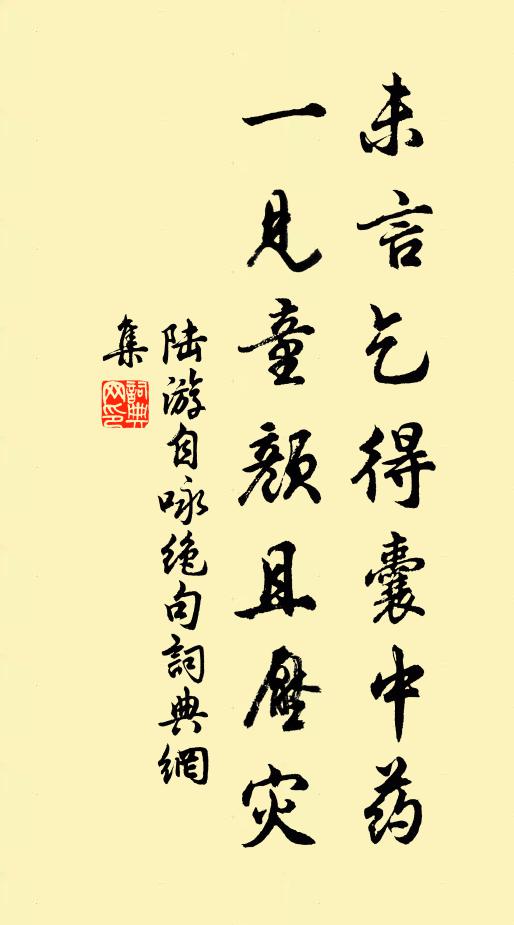 未言乞得囊中药
一見童顏且壓灾
陆游自咏绝句詞典網
集
詞典
网印